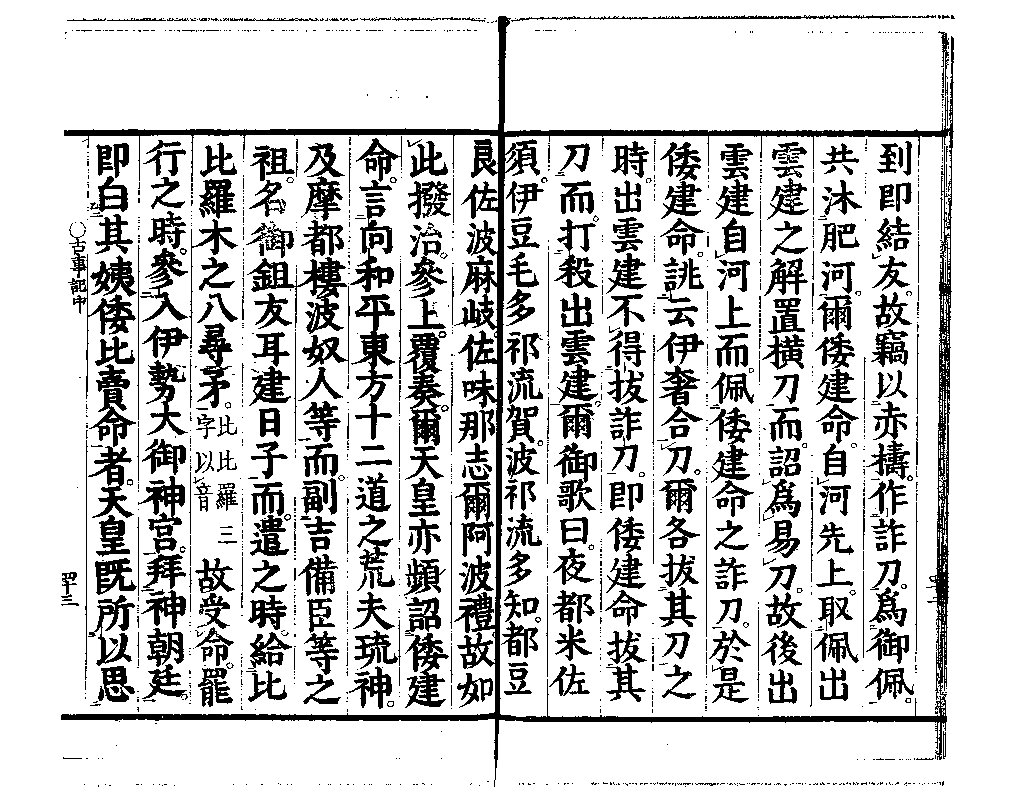 到即結友。故竊以赤檮。作詐刀。爲御佩。
共沐肥河。爾倭建命。自河先上。取佩出
雲建之解置橫刀而。詔爲易刀。故後出
雲建自河上而。佩倭建命之詐刀。於是
倭建命。誂云伊奢合刀。爾各拔其刀之
時。出雲建不得拔詐刀。即倭建命拔其
刀而。打殺出雲建。爾御歌曰。夜都米佐
須。伊豆毛多祁流賀。波祁流多知。都豆
良佐波麻岐。佐味那志爾阿波禮。故如
此撥治。參上。覆奏。爾天皇亦頻詔倭建
命。言向和平東方十二道之荒夫琉神。
及摩都樓波奴人等而。副吉備臣等之
祖。名御鉏友耳建日子而。遣之時。給比
比羅木之八尋矛。比比羅三字以音故受命。罷
行之時。參入伊勢大御神宮。拜神朝廷。
即白其姨倭比賣命者。天皇既所以思
○古事記中
四十三